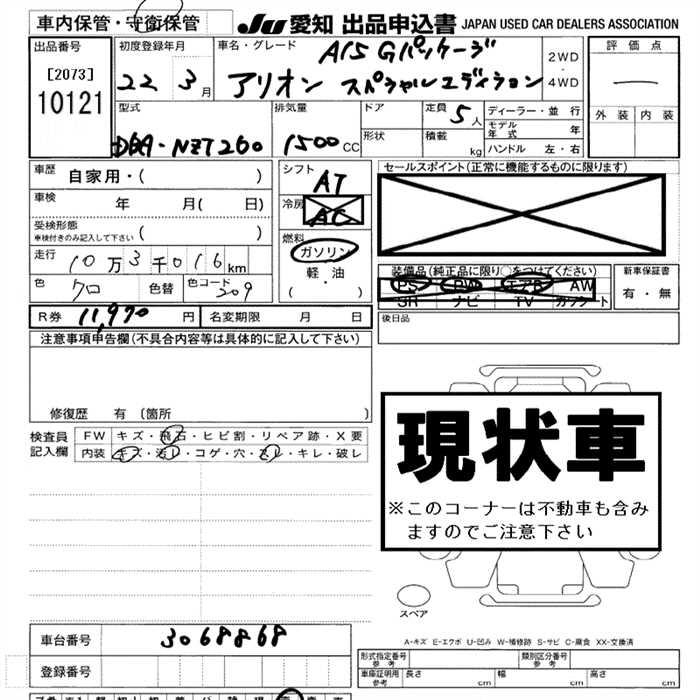 車内保管・守衛保管
JU 愛知 出品申込書 JAPAN USED CAR DEALERS ASSOCIATION
出品番号
[2073]
10121
初度登録年月
22 3月
車名・グレード
A15 Gパッケージ
アリオン スペシャルエディション
2WD
・
4WD
評価点
外装 内装
型式
DBA-NZT260
排気量
1500CC
ドア
形状
定員 5人
積載 kg
ディーラー・並行
モデル年式 年
ハンドル 左・右
車歴 自家用・( )
車検 年 月( 日)
受検形態
車検付きのみ記入して下さい ( )
走行 10万3千016km
色 クロ 色替 色コード 209
シフト AT
冷房 AC
燃料
ガソリン
軽・油
( ・ )
セールスポイント(正常に機能するものに限ります)
装備品(純正品に限り○をつけてください)
PS PW エアB AW
SR ナビ TV カワシート
新車保証書
有・無
R券 11,970円 名変期限 月 日
後日品
注意事項申告欄(不具合内容等は具体的に記入して下さい)
修復歴 有〔箇所 〕
検査員記入欄
FW キズ・飛石・ヒビ割・リペア跡・X要
内装 キズ・汚レ・コゲ・穴・スレ・キレ・破レ
現状車
※このコーナーは不動車も含み
ますのでご注意下さい
スペア
A-キズ E-エクボ U-凹み W-補修跡 S-サビ C-腐食 XX-交換済
車台番号 3068868
登録番号
形式指定番号 参考
類別区分番号 参考
車庫証明用 参考 長さ cm 幅 cm 高さ cm